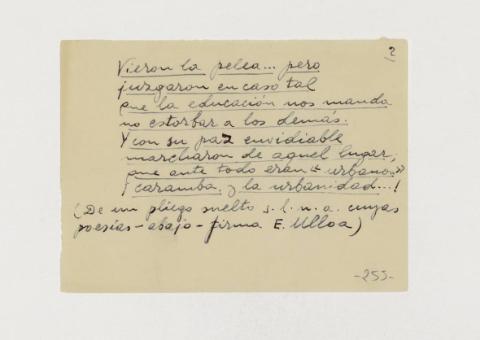 2
Vieron la pelea... pero
juzgaron en caso tal
que la educación nos manda
no estorbar a los demás.
Y con su paz envidiable
marcharon de aquel lugar,
que ante todo eran "urbanos"
¡caramba y la urbanidad...!
(De un pliego suelto s. l. n. a. cuyas
poesías - abajo - firma E. Ulloa)
-255-